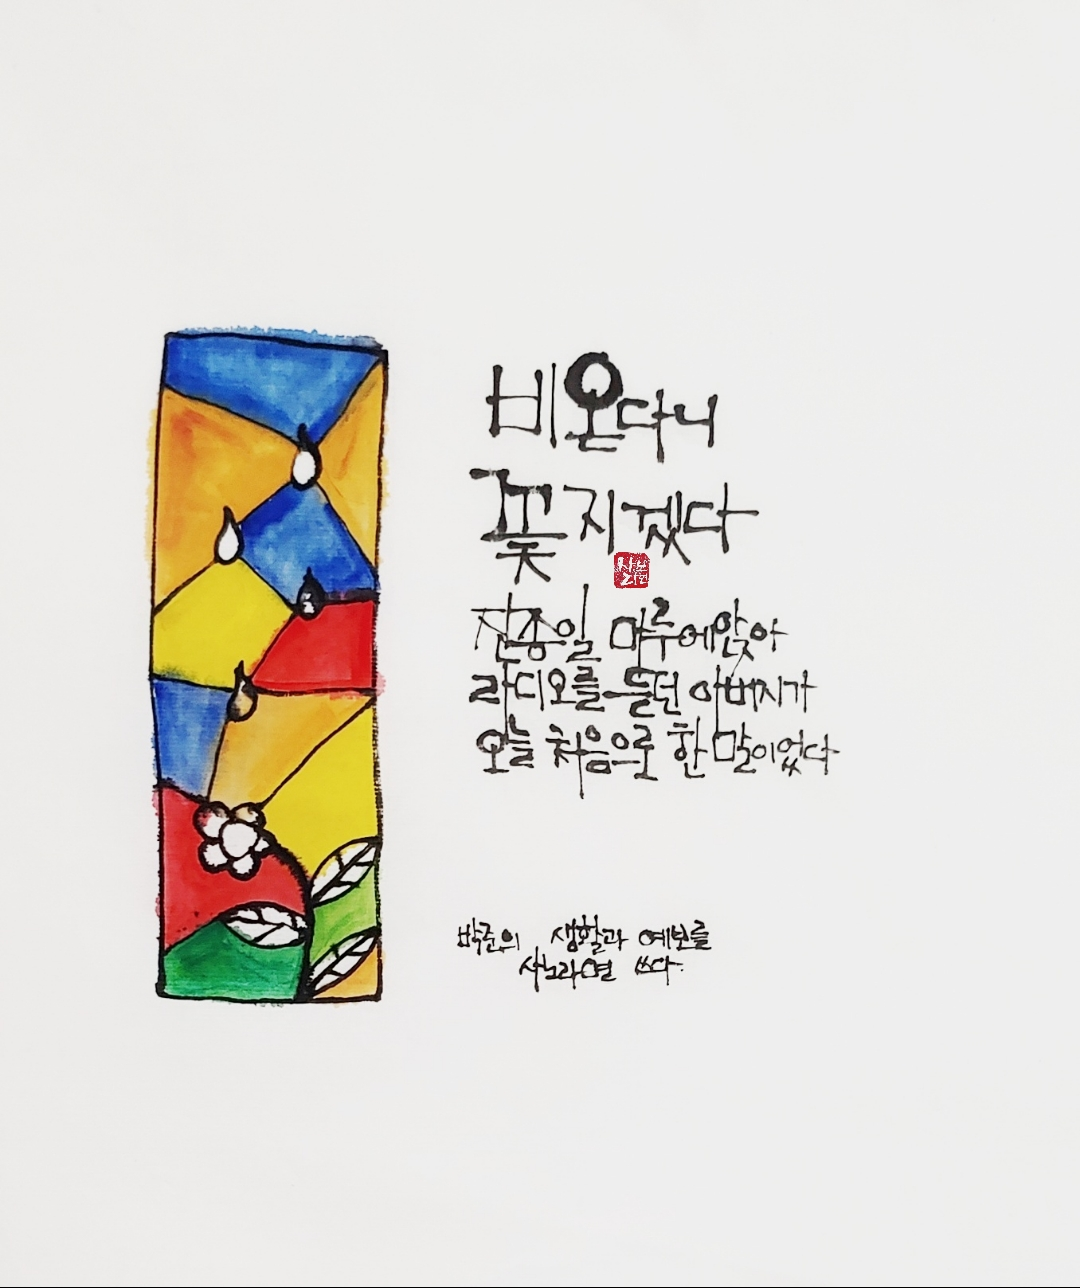 비온다니
꽃지겠다
진종일 마루에앉아
라디오를 듣던 아버지가
오늘 처음으로 한 말이었다
박준의 생활과 예보를
사노라면 쓰다.